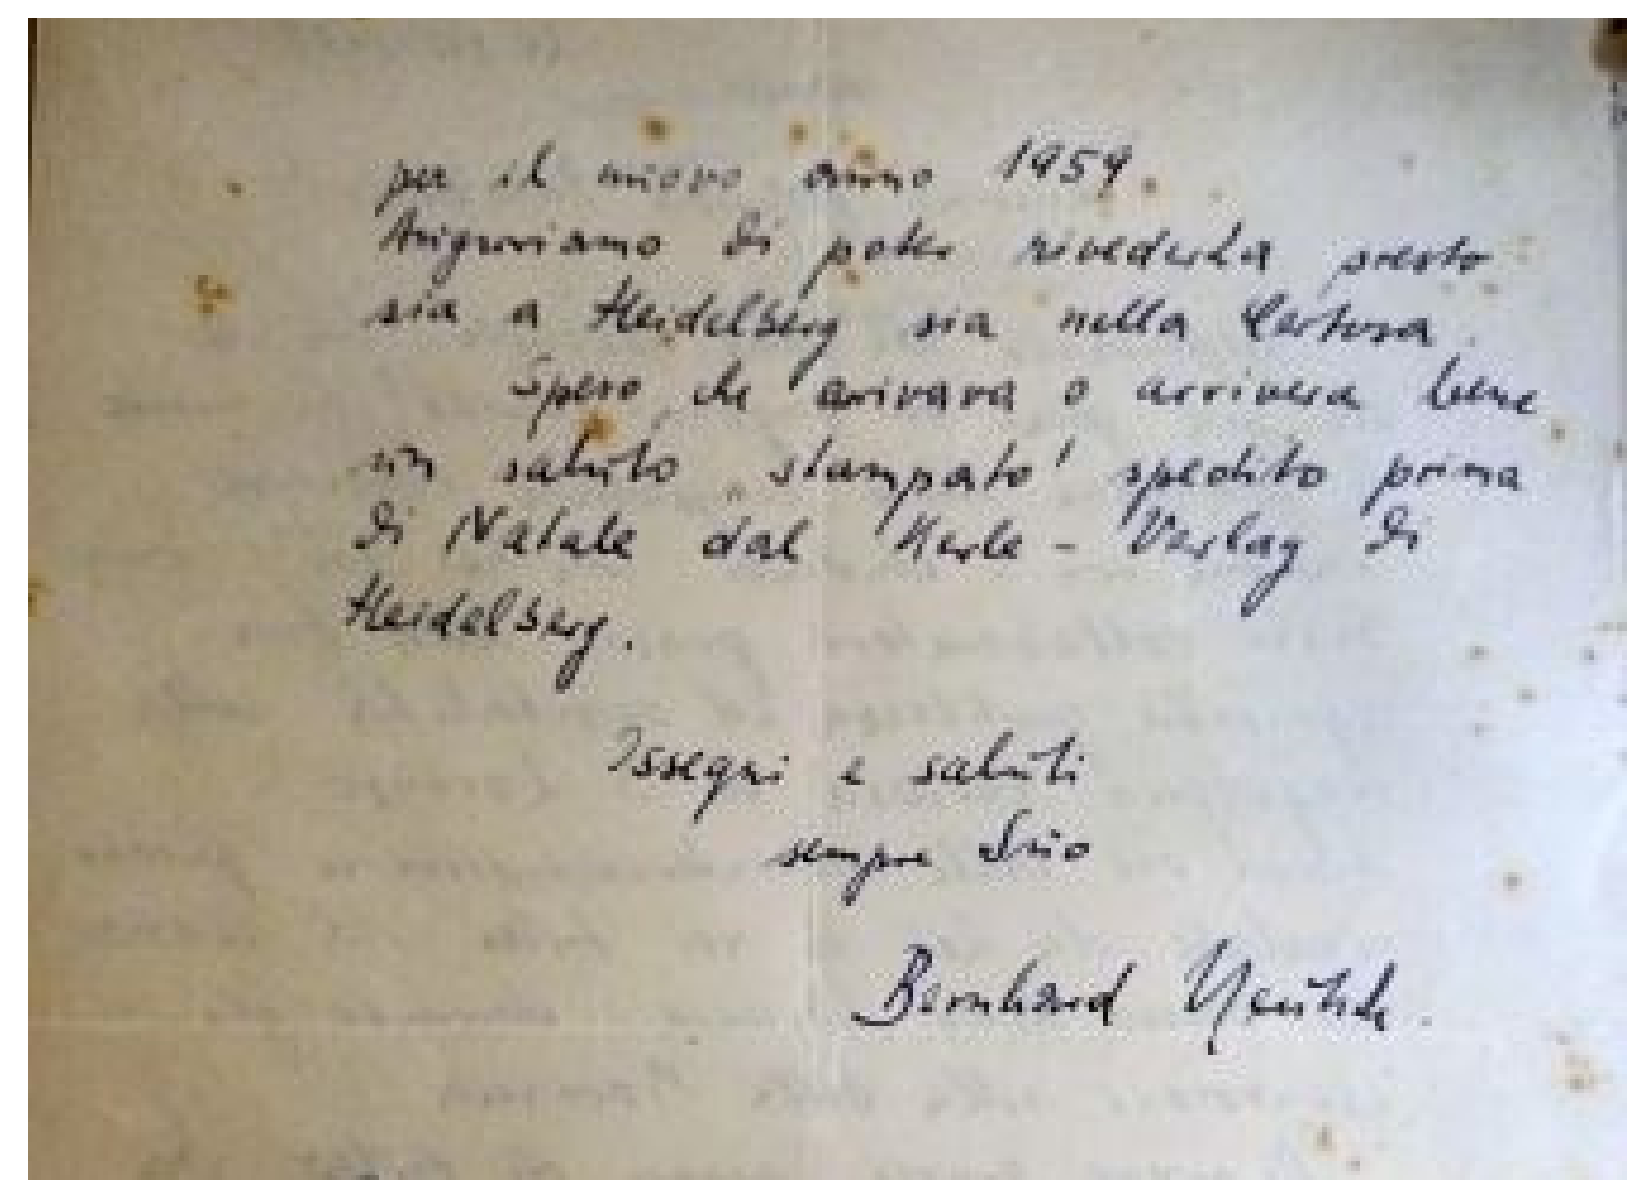 per il nuovo anno 1959.
Auguriamo di poter rivederla presto
sia a Heidelberg sia nella Certosa.
Spero che arrivava o arrivera bene
un saluto „stampato' spedito prima
di Natale dal Kerle-Verlag di
Heidelberg.
Ossequi e saluti
sempre Suo
Bernhard Neutsch.